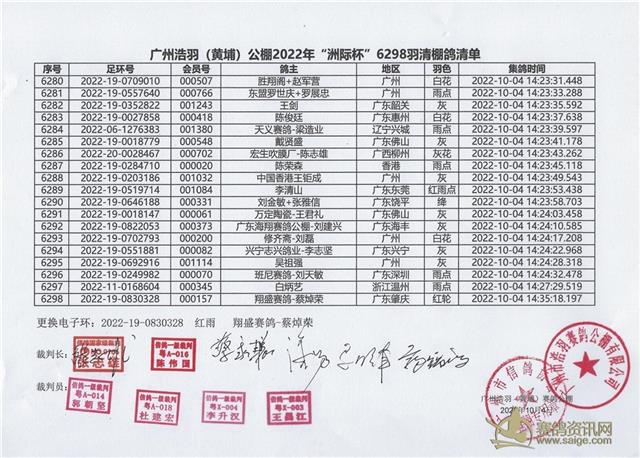 广州浩羽（黄埔）公棚2022年“洲际杯”6298羽清棚鸽清单
序号 足环号 会员号 鸽主 地区 羽色 集鸽时间
6280 2022-19-0709010 000507 胜翔阁+赵军营 广州 白花 2022-10-04 14:23:31.448
6281 2022-19-0557640 000766 东盟罗世庆+罗展忠 广州 雨点 2022-10-04 14:23:33.288
6282 2022-19-0352822 001243 王剑 广东韶关 灰 2022-10-04 14:23:35.592
6283 2022-19-0027858 000418 陈俊廷 广东惠州 白花 2022-10-04 14:23:37.638
6284 2022-06-1276383 001380 天义赛鸽-梁造业 辽宁兴城 雨点 2022-10-04 14:23:39.597
6285 2022-19-0018779 000548 戴贤盛 广东佛山 灰 2022-10-04 14:23:41.171
6286 2022-20-0028467 000702 宏生吹膜厂-陈志雄 广西柳州 灰花 2022-10-04 14:23:43.262
6287 2022-19-0284710 000020 陈荣森 香港 雨点 2022-10-04 14:23:45.118
6288 2022-19-0203186 001032 中国香港王钜成 广州 灰 2022-10-04 14:23:49.543
6289 2022-19-0519714 001084 李清山 广东东莞 红雨点 2022-10-04 14:23:53.438
6290 2022-19-0646188 000331 刘金敏+张雅信 广东饶平 绛 2022-10-04 14:23:58.703
6291 2022-19-0018147 000061 万定陶瓷-王君礼 广东佛山 灰 2022-10-04 14:24:03.458
6292 2022-19-0822053 000373 广东海翔赛鸽公棚-刘建兴 广东海丰 灰 2022-10-04 14:24:10.585
6293 2022-19-0702793 000200 修齐斋-刘磊 广州 白花 2022-10-04 14:24:17.208
6294 2022-19-0551881 000082 兴宁志兴鸽业-李志坚 广东兴宁 灰 2022-10-04 14:24:22.968
6295 2022-19-0692916 001114 吴祖强 广州 灰 2022-10-04 14:24:28.318
6296 2022-19-0249982 000070 班尼赛鸽-刘天敏 广东深圳 雨点 2022-10-04 14:24:32.478
6297 2022-11-0168604 000345 白炳艺 浙江温州 雨点 2022-10-04 14:27:51.159
6298 2022-19-0830328 000157 翔盛赛鸽-蔡焯荣 广东肇庆 红轮 2022-10-04 14:35:18.197
更换电子环：2022-19-0830328 红雨 翔盛赛鸽-蔡焯荣
裁判长：
信鸽一级裁判 粤A-016 陈伟国
裁判员：
信鸽一级裁判 粤A-014 郭朝坚
信鸽一级裁判 粤A-018 杜建宏
信鸽一级裁判 粤X-004 李升汉
信鸽一级裁判 粤X-003 王昌江
广州浩羽（黄埔）赛鸽公棚
2022年10月4日
赛鸽资讯网
www.saige.com